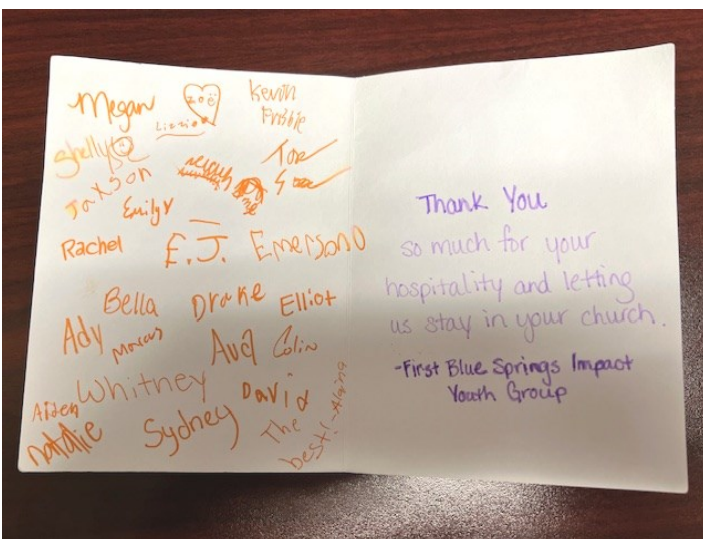 Megan
Zoë
Kevin
Frisbie
Lizzie
Shelly
Jaxson
Emily
Rachel
E.J. Emerson
Bella
Drake
Elliot
Ady
Marcus
Ava
Colin
Whitney
David
Aiden
Natalie
Sydney
The
best!
Thank You
so much for your
hospitality and letting
us stay in your church.
-First Blue Springs Impact
Youth Group